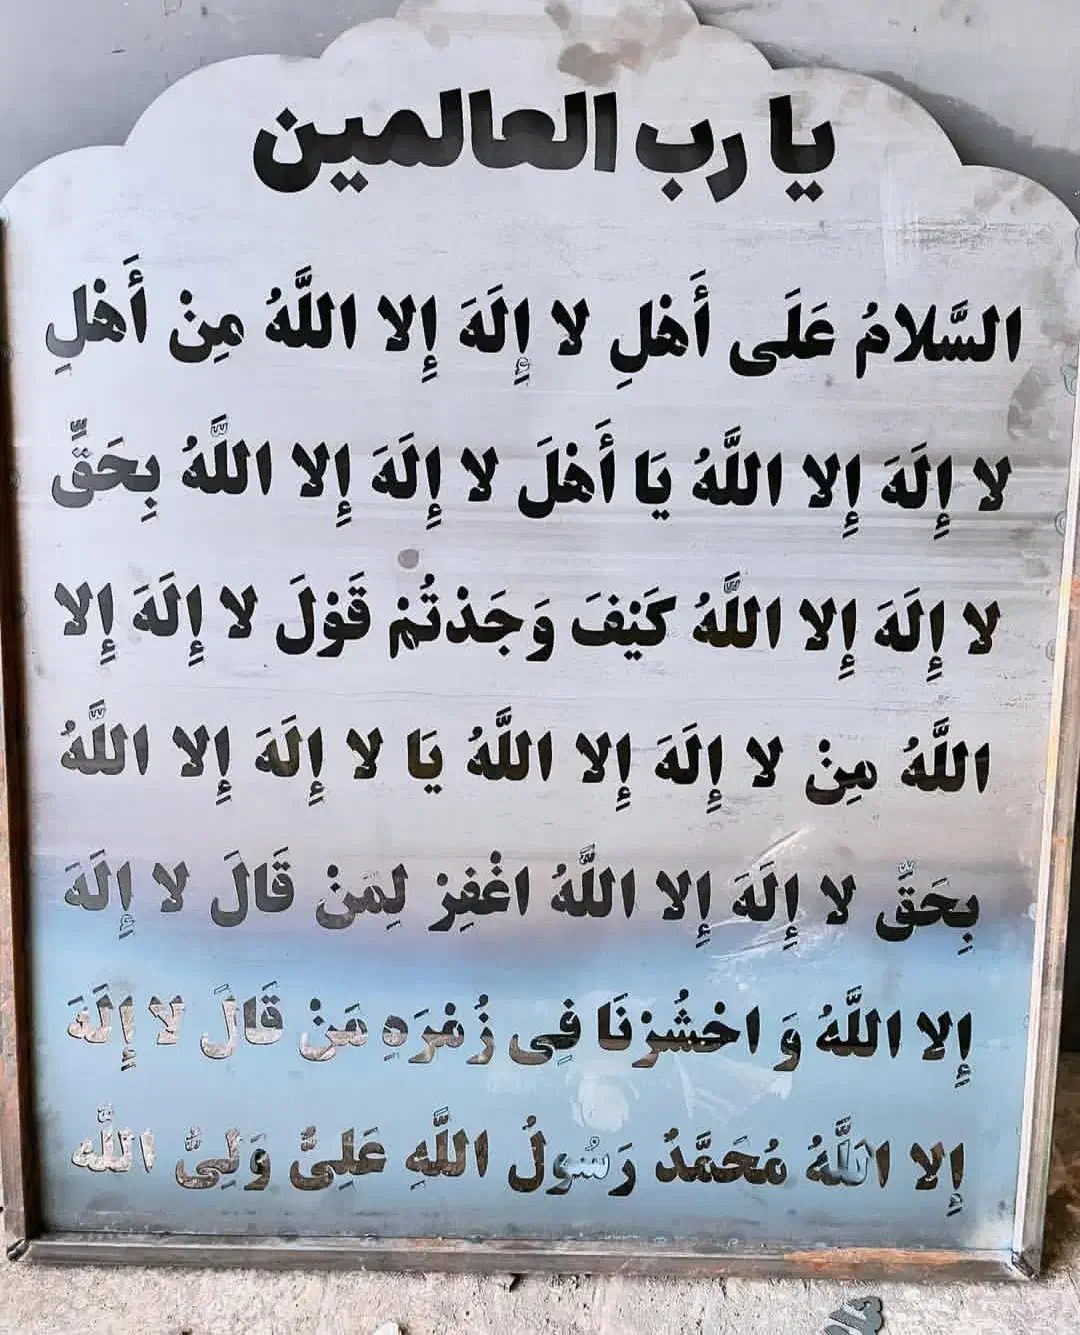 يا رب العالمين
السَّلامُ عَلَى أَهْلِ لا إِلَهَ إِلا اللَّهُ مِنْ أَهْلِ
لا إِلَهَ إِلا اللَّهُ يَا أَهْلَ لا إِلَهَ إِلا اللَّهُ بِحَقِّ
لا إِلَهَ إِلا اللَّهُ كَيْفَ وَجَدْتُمْ قَوْلَ لا إِلَهَ إِلا
اللَّهُ مِنْ لا إِلَهَ إِلا اللَّهُ يَا لا إِلَهَ إِلا اللَّهُ
بِحَقِّ لا إِلَهَ إِلا اللَّهُ اغْفِرْ لِمَنْ قَالَ لا إِلَهَ
إِلا اللَّهُ وَ احْشُرْنَا فِی زُمْرَهِ مَنْ قَالَ لا إِلَهَ
إِلا اللَّهُ مُحَمَّدٌ رَسُولُ اللَّهِ عَلِیٌّ وَلِیُّ اللَّه